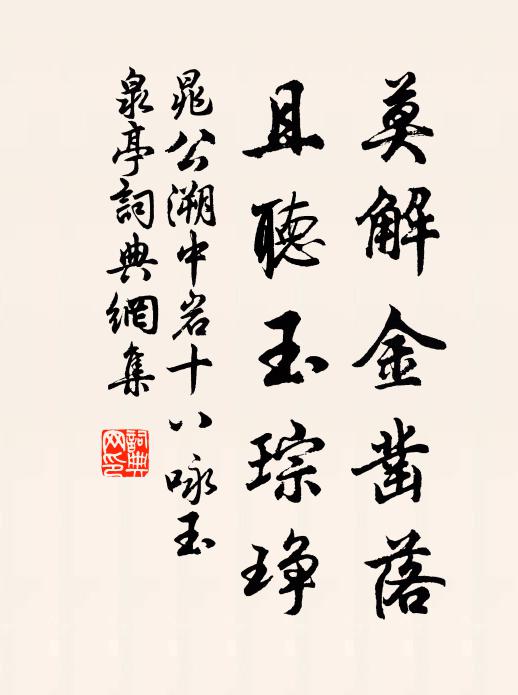 莫解金凿落
且聽玉琮琤
晁公溯中岩十八咏玉
泉亭詞典網集
詞典网印